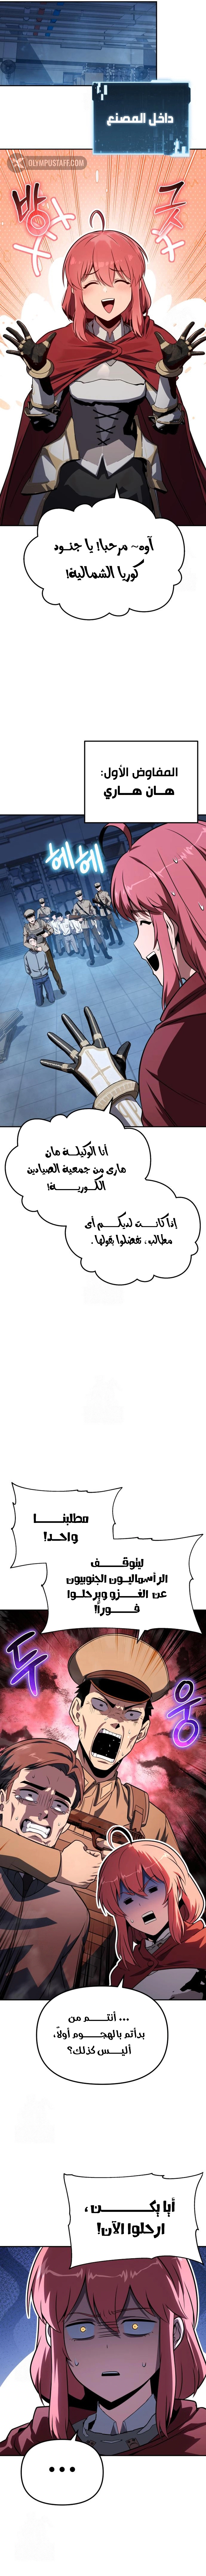 داخل المصنع
OLYMPUSTAFF.COM
방긋
آوه~ مرحبا! يا جنود
كوريا الشمالية!
المفاوض الأول:
هان هاري
헤헤
أنا الوكيلة هان
هاري من جمعية الصيادين
الكورية!
إذا كانت لديكم أي
مطالب، تفضلوا بقولها.
مطلبنا
واحد!
ليتوقف
الرأسماليون الجنوبيون
عن الغزو ويرحلوا
فوراً!
두웅
... أنتم من
بدأتم بالهجوم أولاً،
أليس كذلك؟
أيا يكن،
ارحلوا الآن!
...